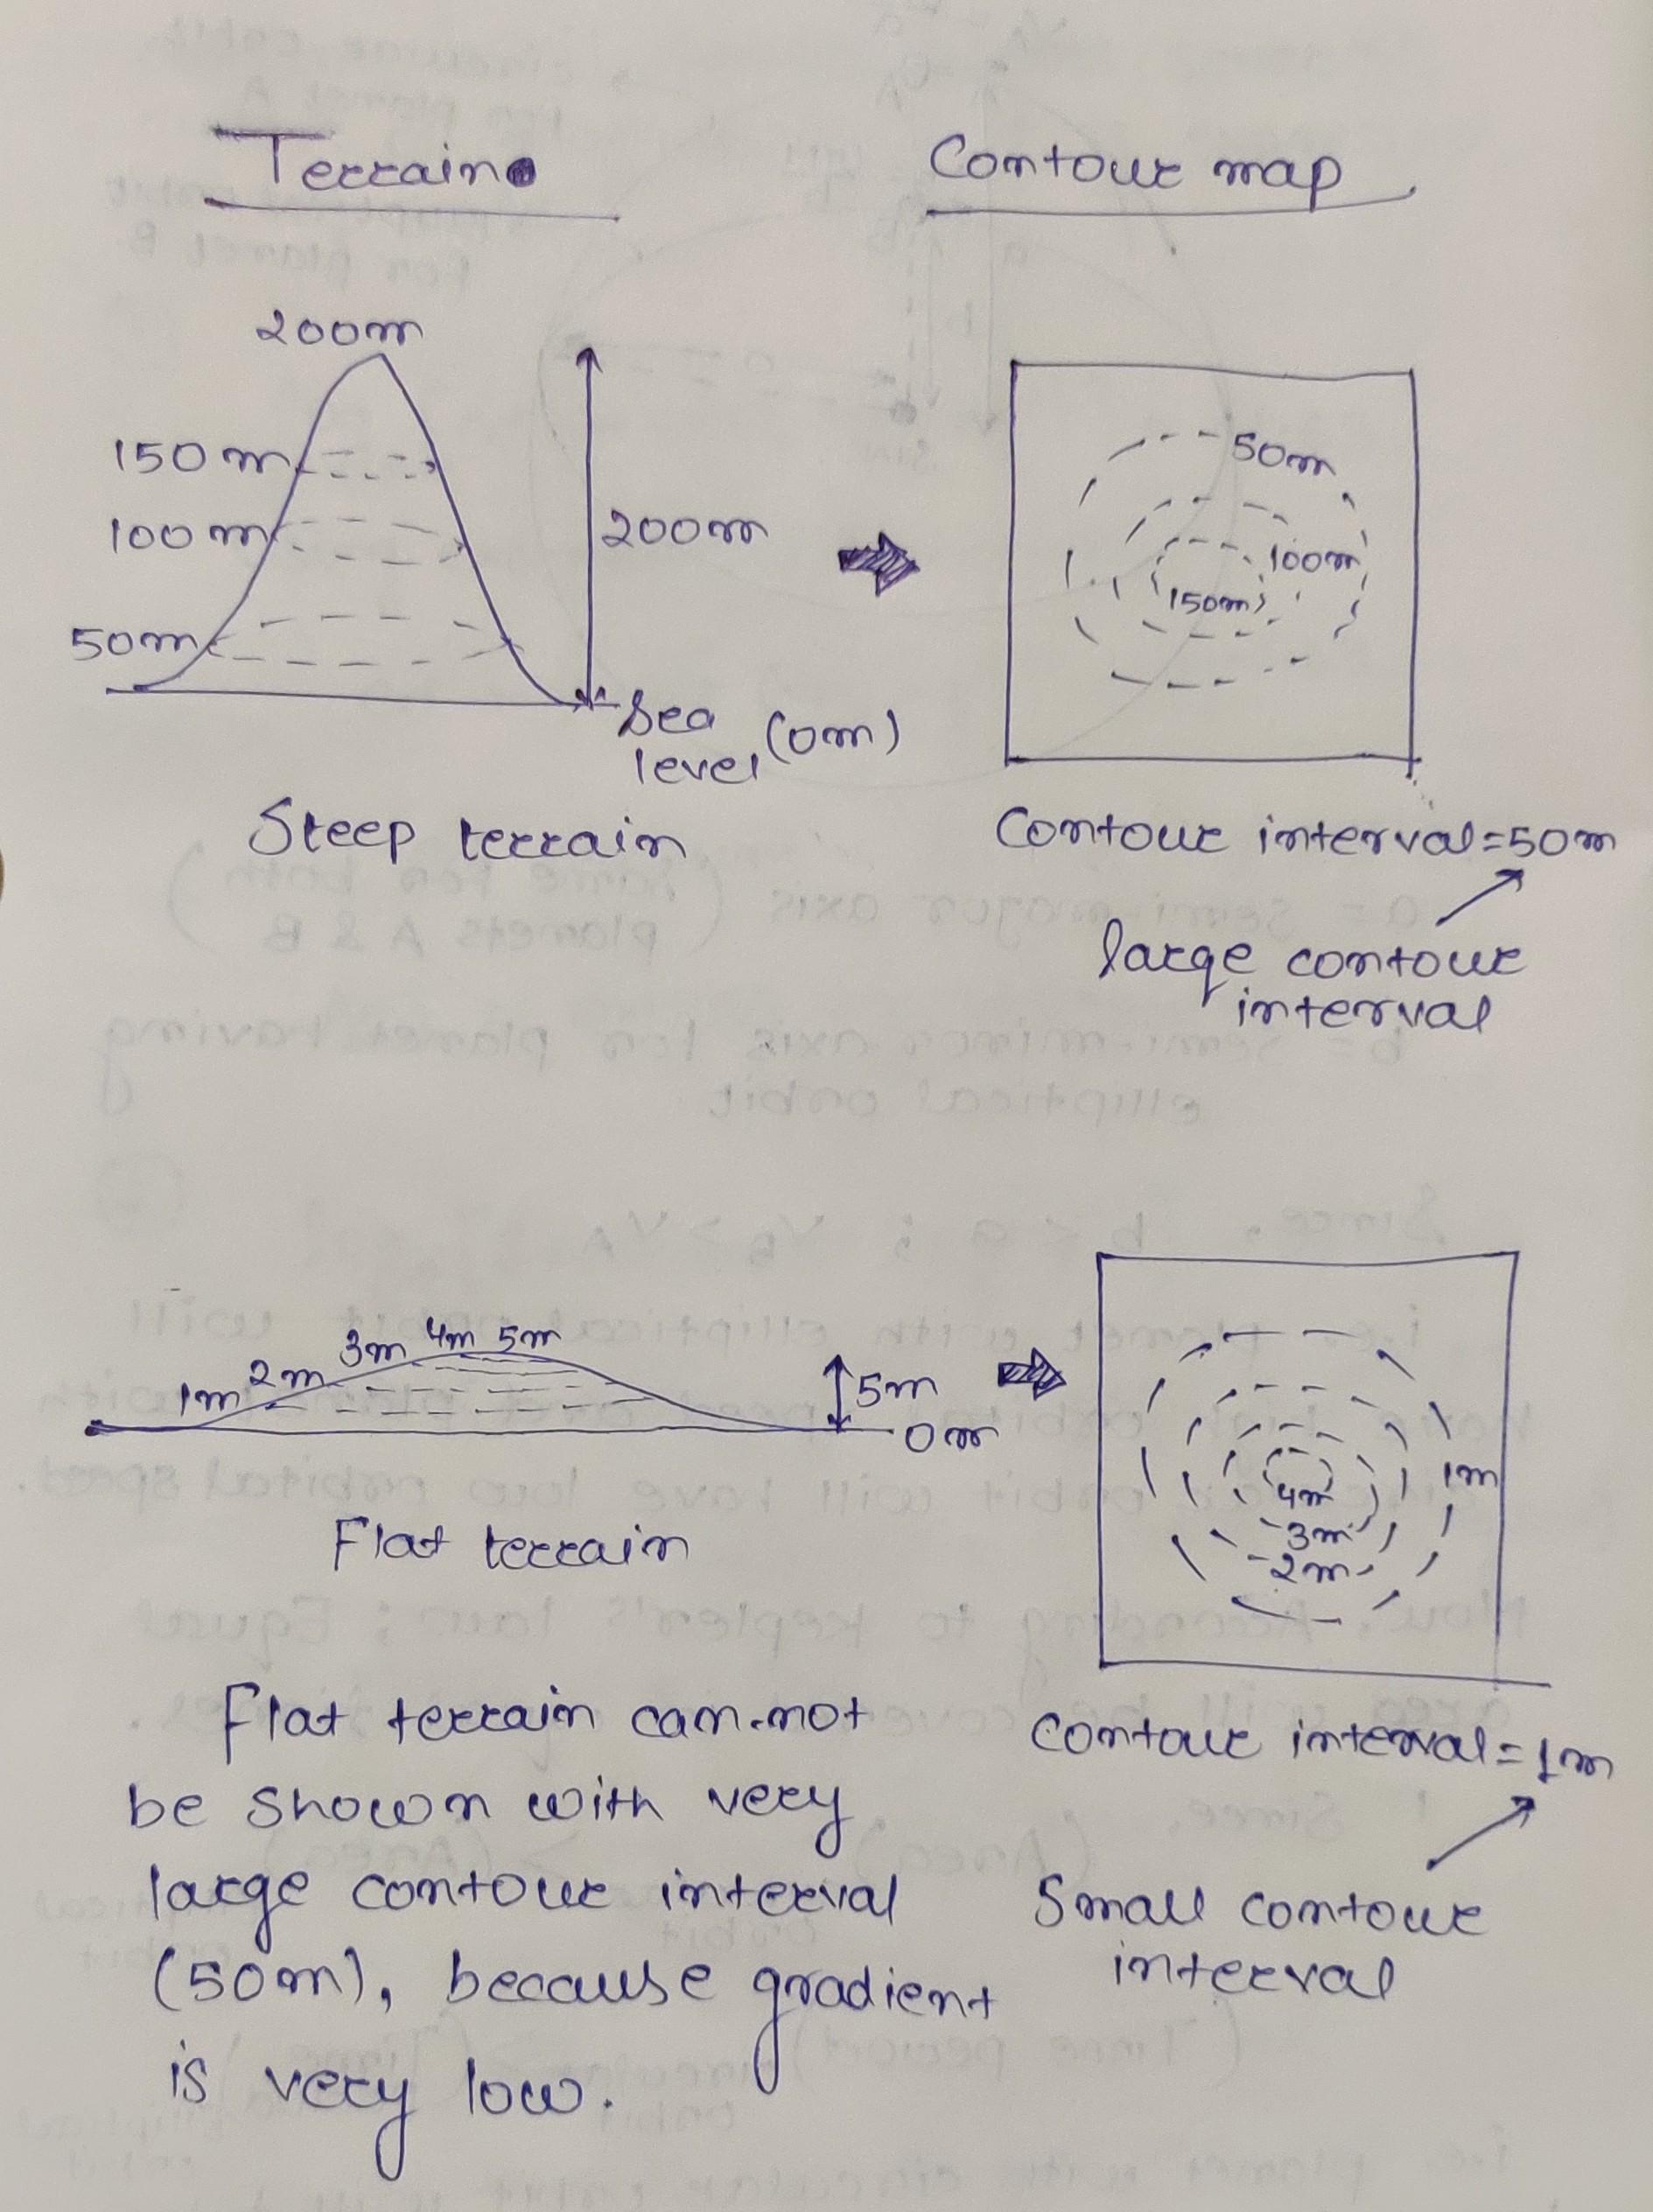 Terrain
Contour map
200m
150m
100m
50m
200m
Sea
level (0m)
50m
100m
150m
Steep terrain
Contour interval=50m
large contour
interval
1m 2m 3m 4m 5m
5m
0m
4m
3m
2m
1m
Flat terrain
Contour interval=1m
Small contour
interval
Flat terrain can-not
be shown with very
large contour interval
(50m), because gradient
is very low.